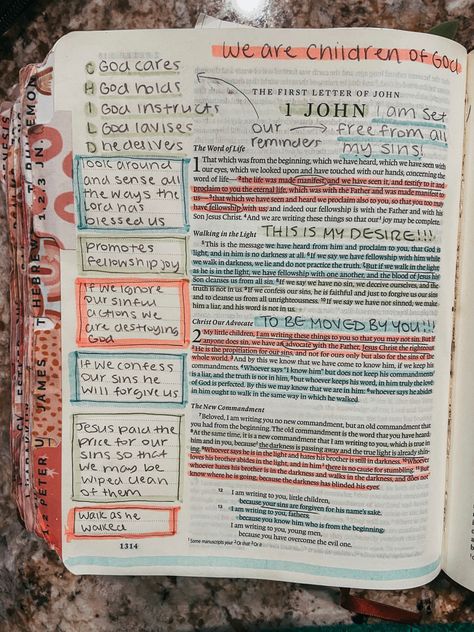 We are children of God
C God cares
H God holds
I God instructs
L God lavises
D he delivers
look around
and sense all
the ways the
Lord has
blessed us
promotes
fellowship joy
if we ignore
our sinful
actions we
are destroying
God
if we confess
our sins he
will forgive us
Jesus paid the
price for our
sins so that
we may be
wiped clean
of them
walk as he
walked
1314
THE FIRST LETTER OF JOHN
1 JOHN
I am set
free from all
my sins!
our
reminders
The Word of Life
1 That which was from the beginning, which we have heard, which we have seen with
our eyes, which we looked upon and have touched with our hands, concerning the
word of life— 2 the life was made manifest, and we have seen it, and testify to it and
proclaim to you the eternal life, which was with the Father and was made manifest to
us— 3 that which we have seen and heard we proclaim also to you, so that you too may
have fellowship with us; and indeed our fellowship is with the Father and with his
Son Jesus Christ. 4 And we are writing these things so that our joy may be complete.
Walking in the Light
THIS IS MY DESIRE!!!
5 This is the message we have heard from him and proclaim to you, that God is
light, and in him is no darkness at all. 6 If we say we have fellowship with him while
we walk in darkness, we lie and do not practice the truth. 7 But if we walk in the light,
as he is in the light, we have fellowship with one another, and the blood of Jesus his
Son cleanses us from all sin. 8 If we say we have no sin, we deceive ourselves, and the
truth is not in us. 9 If we confess our sins, he is faithful and just to forgive us our sins
and to cleanse us from all unrighteousness. 10 If we say we have not sinned, we make
him a liar, and his word is not in us.
Christ Our Advocate
TO BE MOVED BY YOU!!!
2 My little children, I am writing these things to you so that you may not sin. But if
anyone does sin, we have an advocate with the Father, Jesus Christ the righteous.
2 He is the propitiation for our sins, and not for ours only but also for the sins of the
whole world. 3 And by this we know that we have come to know him, if we keep his
commandments. 4 Whoever says "I know him" but does not keep his commandments
is a liar, and the truth is not in him, 5 but whoever keeps his word, in him truly the love
of God is perfected. By this we may know that we are in him: 6 whoever says he abides
in him ought to walk in the same way in which he walked.
The New Commandment
7 Beloved, I am writing you no new commandment, but an old commandment that
you had from the beginning. The old commandment is the word that you have heard.
8 At the same time, it is a new commandment that I am writing to you, which is true in
him and in you, because the darkness is passing away and the true light is already shin-
ing. 9 Whoever says he is in the light and hates his brother is still in darkness. 10 Whoever
loves his brother abides in the light, and in him there is no cause for stumbling. 11 But
whoever hates his brother is in the darkness and walks in the darkness, and does not
know where he is going, because the darkness has blinded his eyes.
12 I am writing to you, little children,
because your sins are forgiven for his name's sake.
13 I am writing to you, fathers,
because you know him who is from the beginning.
I am writing to you, young men,
because you have overcome the evil one.